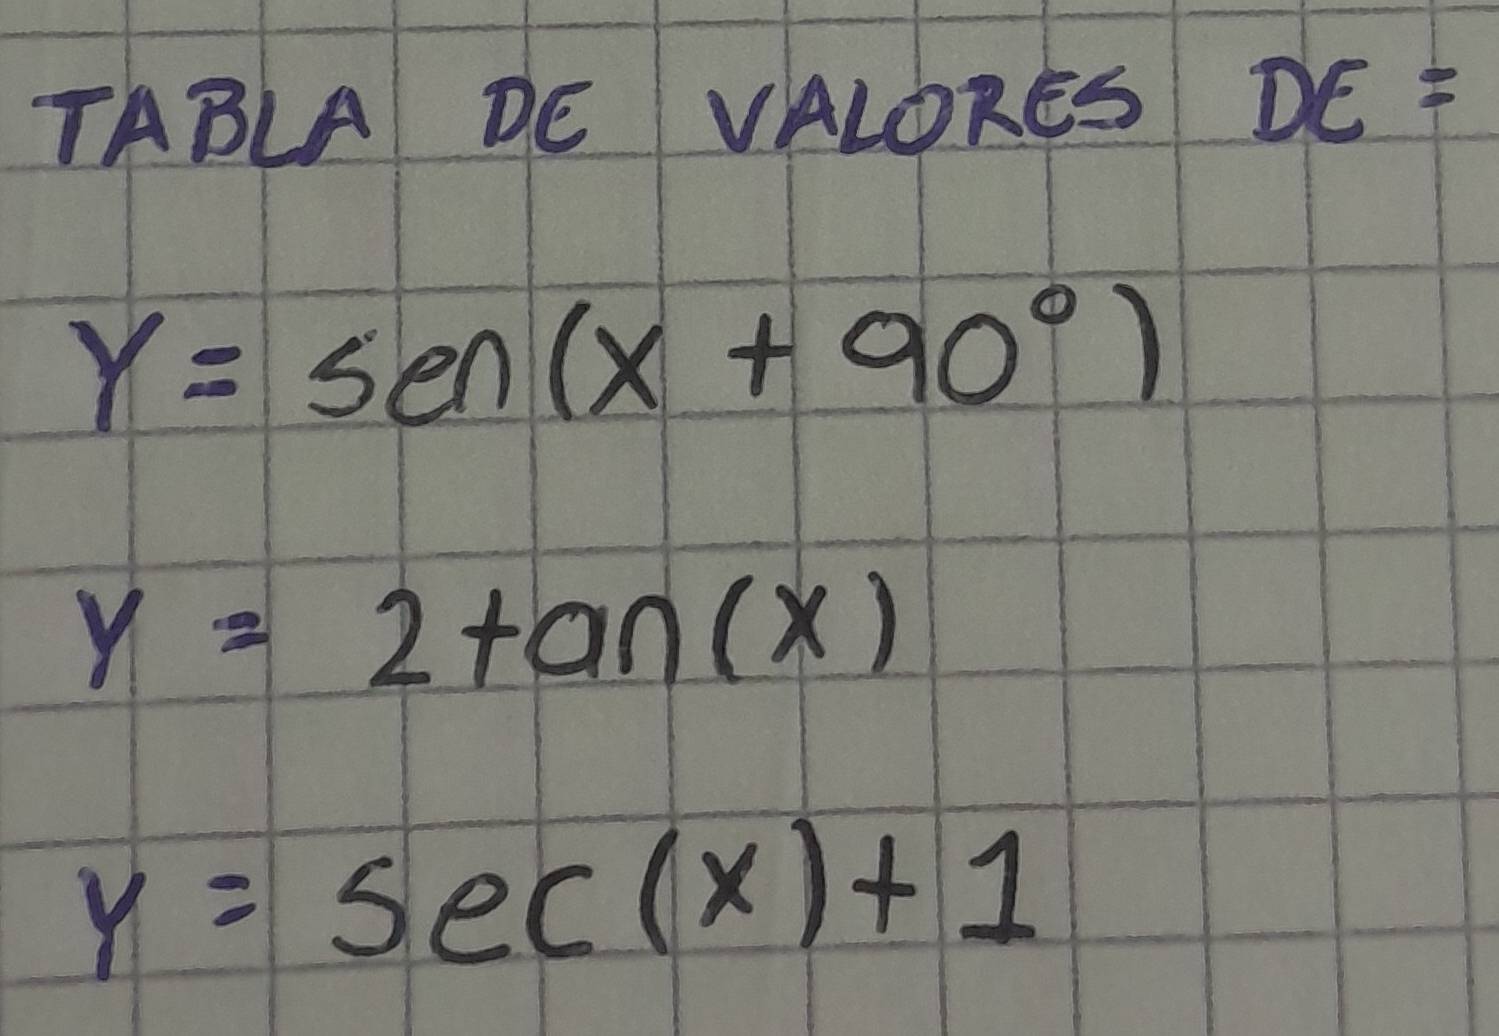 TABLA DE VALORES DE =
Y = sen(x + 90°)
Y = 2tan(x)
Y = sec(x)+1